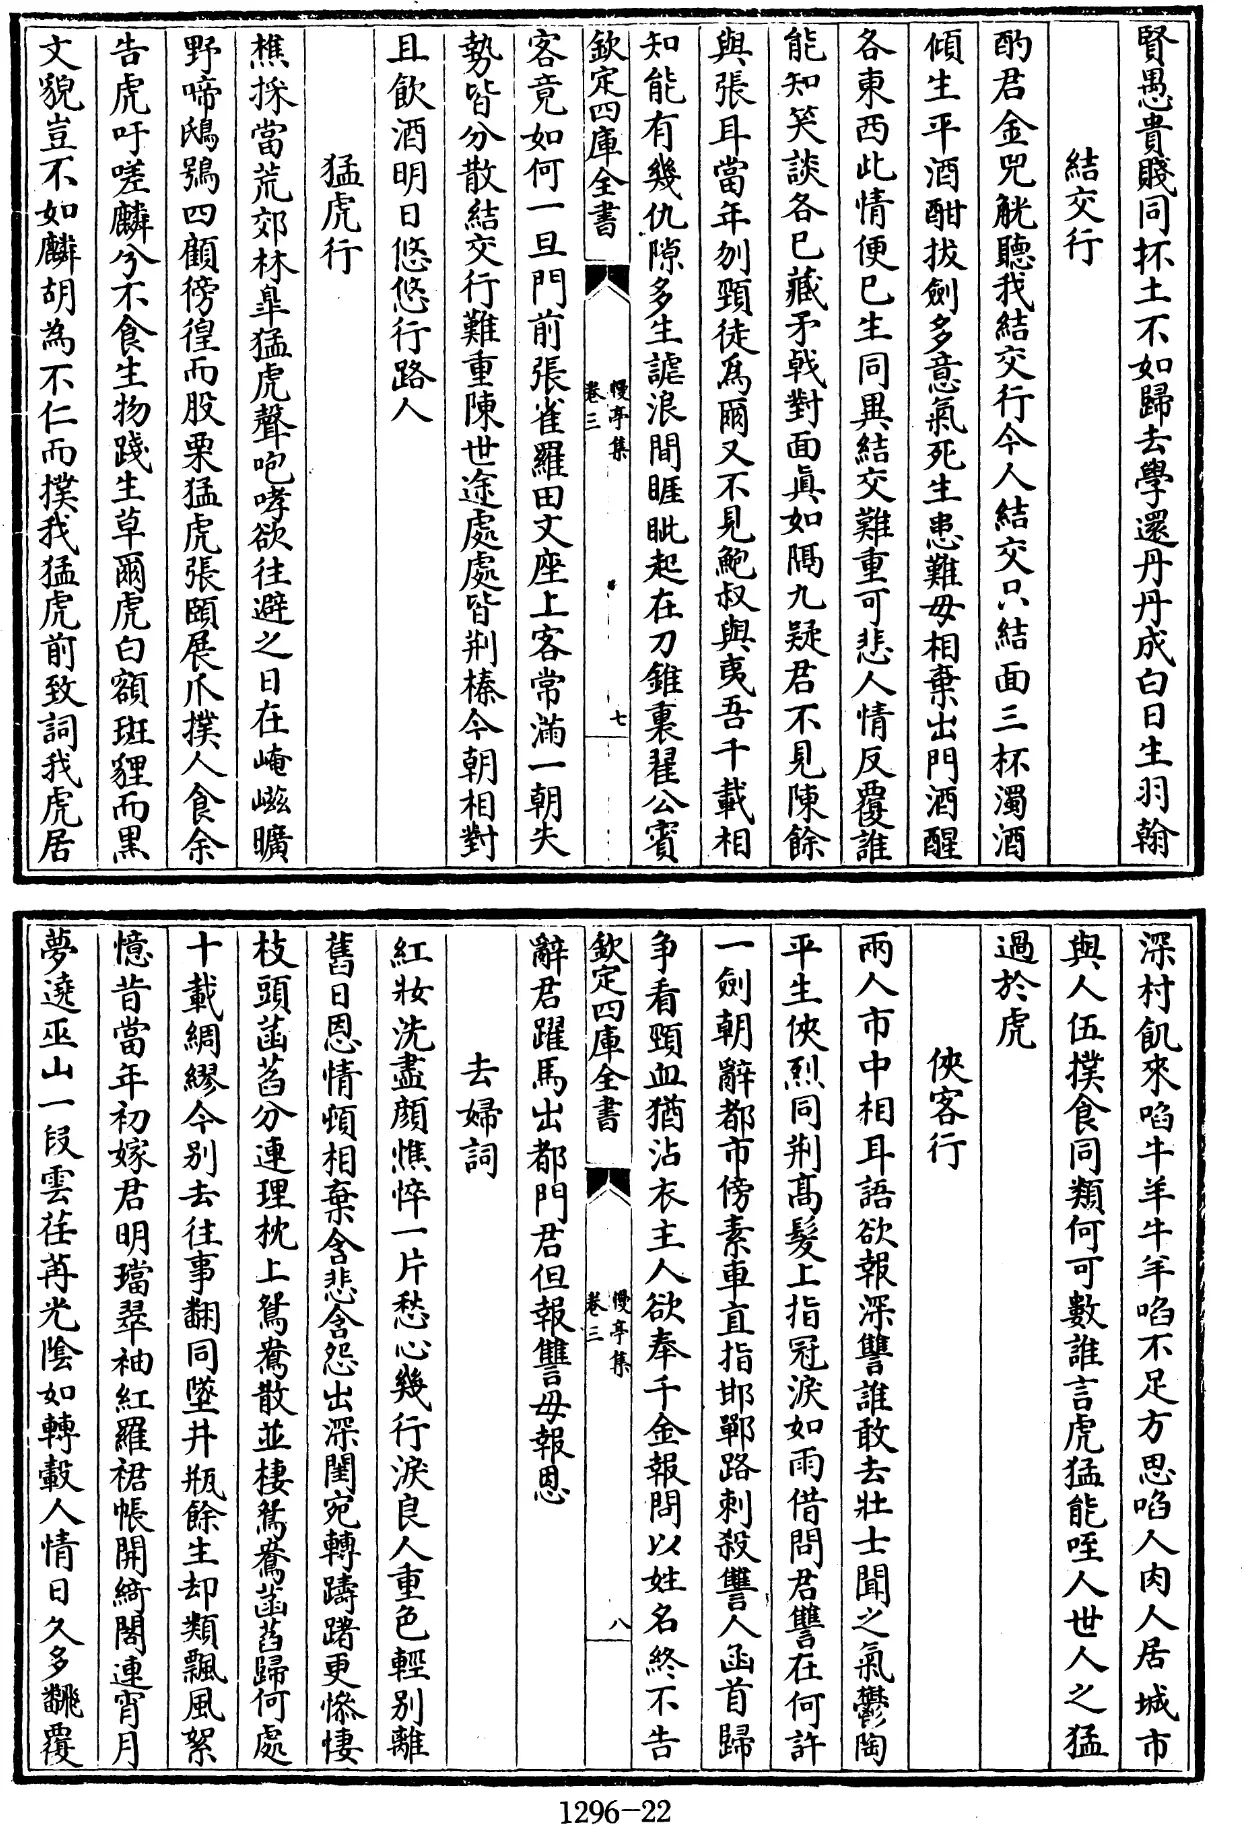 賢愚貴賤同抔土不如歸去學還丹丹成白日生羽翰
結交行
酌君金兕觥聽我結交行今人結交只結面三杯濁酒
傾生平酒酣拔劍多意氣死生患難毋相棄出門酒醒
各東西此情便已生同異結交難重可悲人情反覆誰
能知笑談各已藏矛戟對面真如隔九疑君不見陳餘
與張耳當年刎頸徒為爾又不見鮑叔與夷吾千載相
知能有幾仇隙多生謔浪間睚眦起在刀錐裏翟公賓
欽定四庫全書
慢亭集
卷三
七
客竟如何一旦門前張雀羅田文座上客常滿一朝失
勢皆分散結交行難重陳世途處處皆荆榛今朝相對
且飲酒明日悠悠行路人
猛虎行
樵採當荒郊林臯猛虎聲咆哮欲往避之日在崦嵫曠
野啼鴟鴞四顧徬徨而股栗猛虎張頤展爪撲人食余
告虎吁嗟麟兮不食生物踐生草爾虎白額斑貍而黒
文貌豈不如麟胡為不仁而撲我猛虎前致詞我虎居
深村飢來啗牛羊牛羊啗不足方思啗人肉人居城市
與人伍撲食同類何可數誰言虎猛能咥人世人之猛
過於虎
俠客行
兩人市中相耳語欲報深讐誰敢去壯士聞之氣鬱陶
平生俠烈同荆高髮上指冠淚如雨借問君讐在何許
一劍朝辭都市傍素車直指邯鄲路刺殺讐人函首歸
爭看頸血猶沾衣主人欲奉千金報問以姓名終不告
欽定四庫全書
慢亭集
卷三
八
辭君躍馬出都門君但報讐毋報恩
去婦詞
紅妝洗盡顔憔悴一片愁心幾行淚良人重色輕別離
舊日恩情頓相棄含悲含怨出深閨宛轉躊躇更慘悽
枝頭菡萏分連理枕上鴛鴦散並棲鴛鴦菡萏歸何處
十載綢繆今別去往事翻同墜井瓶餘生却類飄風絮
憶昔當年初嫁君明璫翠袖紅羅裙帳開綺閣連宵月
夢遶巫山一段雲荏苒光陰如轉轂人情日久多飜覆
1296-22